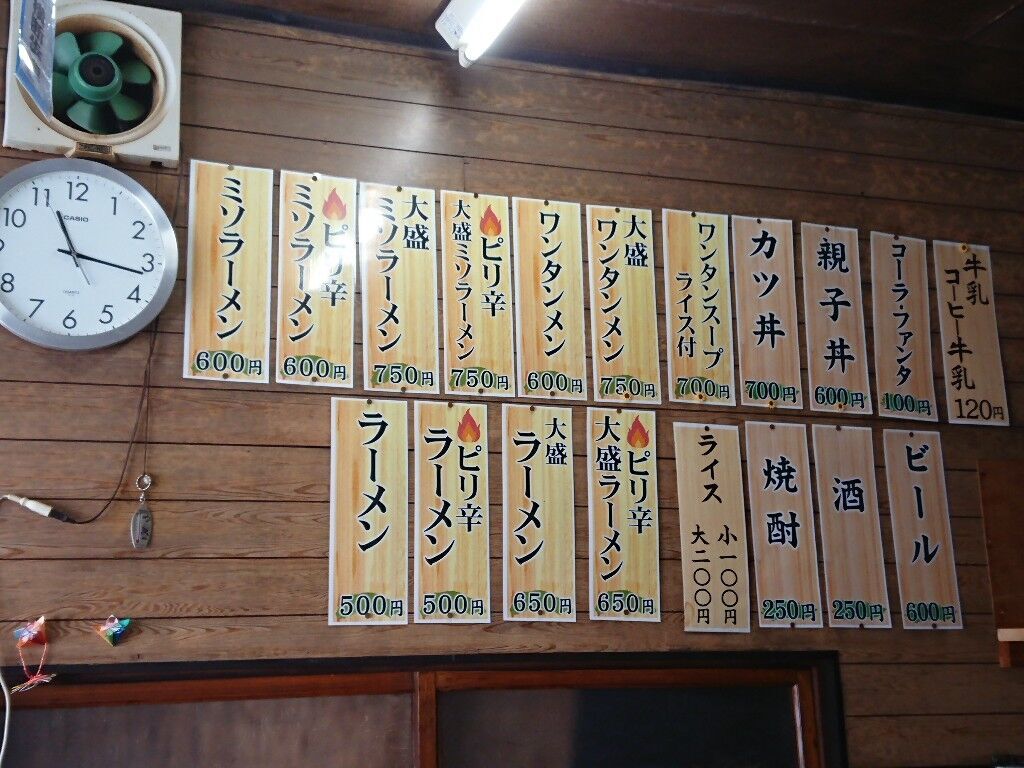 12
1
2
3
4
5
6
7
8
9
10
11
CASIO
QUARTZ
ミソラーメン
600円
ピリ辛
ミソラーメン
600円
大盛
ミソラーメン
750円
ピリ辛
大盛ミソラーメン
750円
ワンタンメン
600円
大盛
ワンタンメン
750円
ワンタンスープ
ライス付
700円
カツ丼
700円
親子丼
600円
コーラ・ファンタ
100円
牛乳
コーヒー牛乳
120円
ラーメン
500円
ピリ辛
ラーメン
500円
大盛
ラーメン
650円
ピリ辛
大盛ラーメン
650円
ライス
小一〇〇円
大二〇〇円
焼酎
250円
酒
250円
ビール
600円